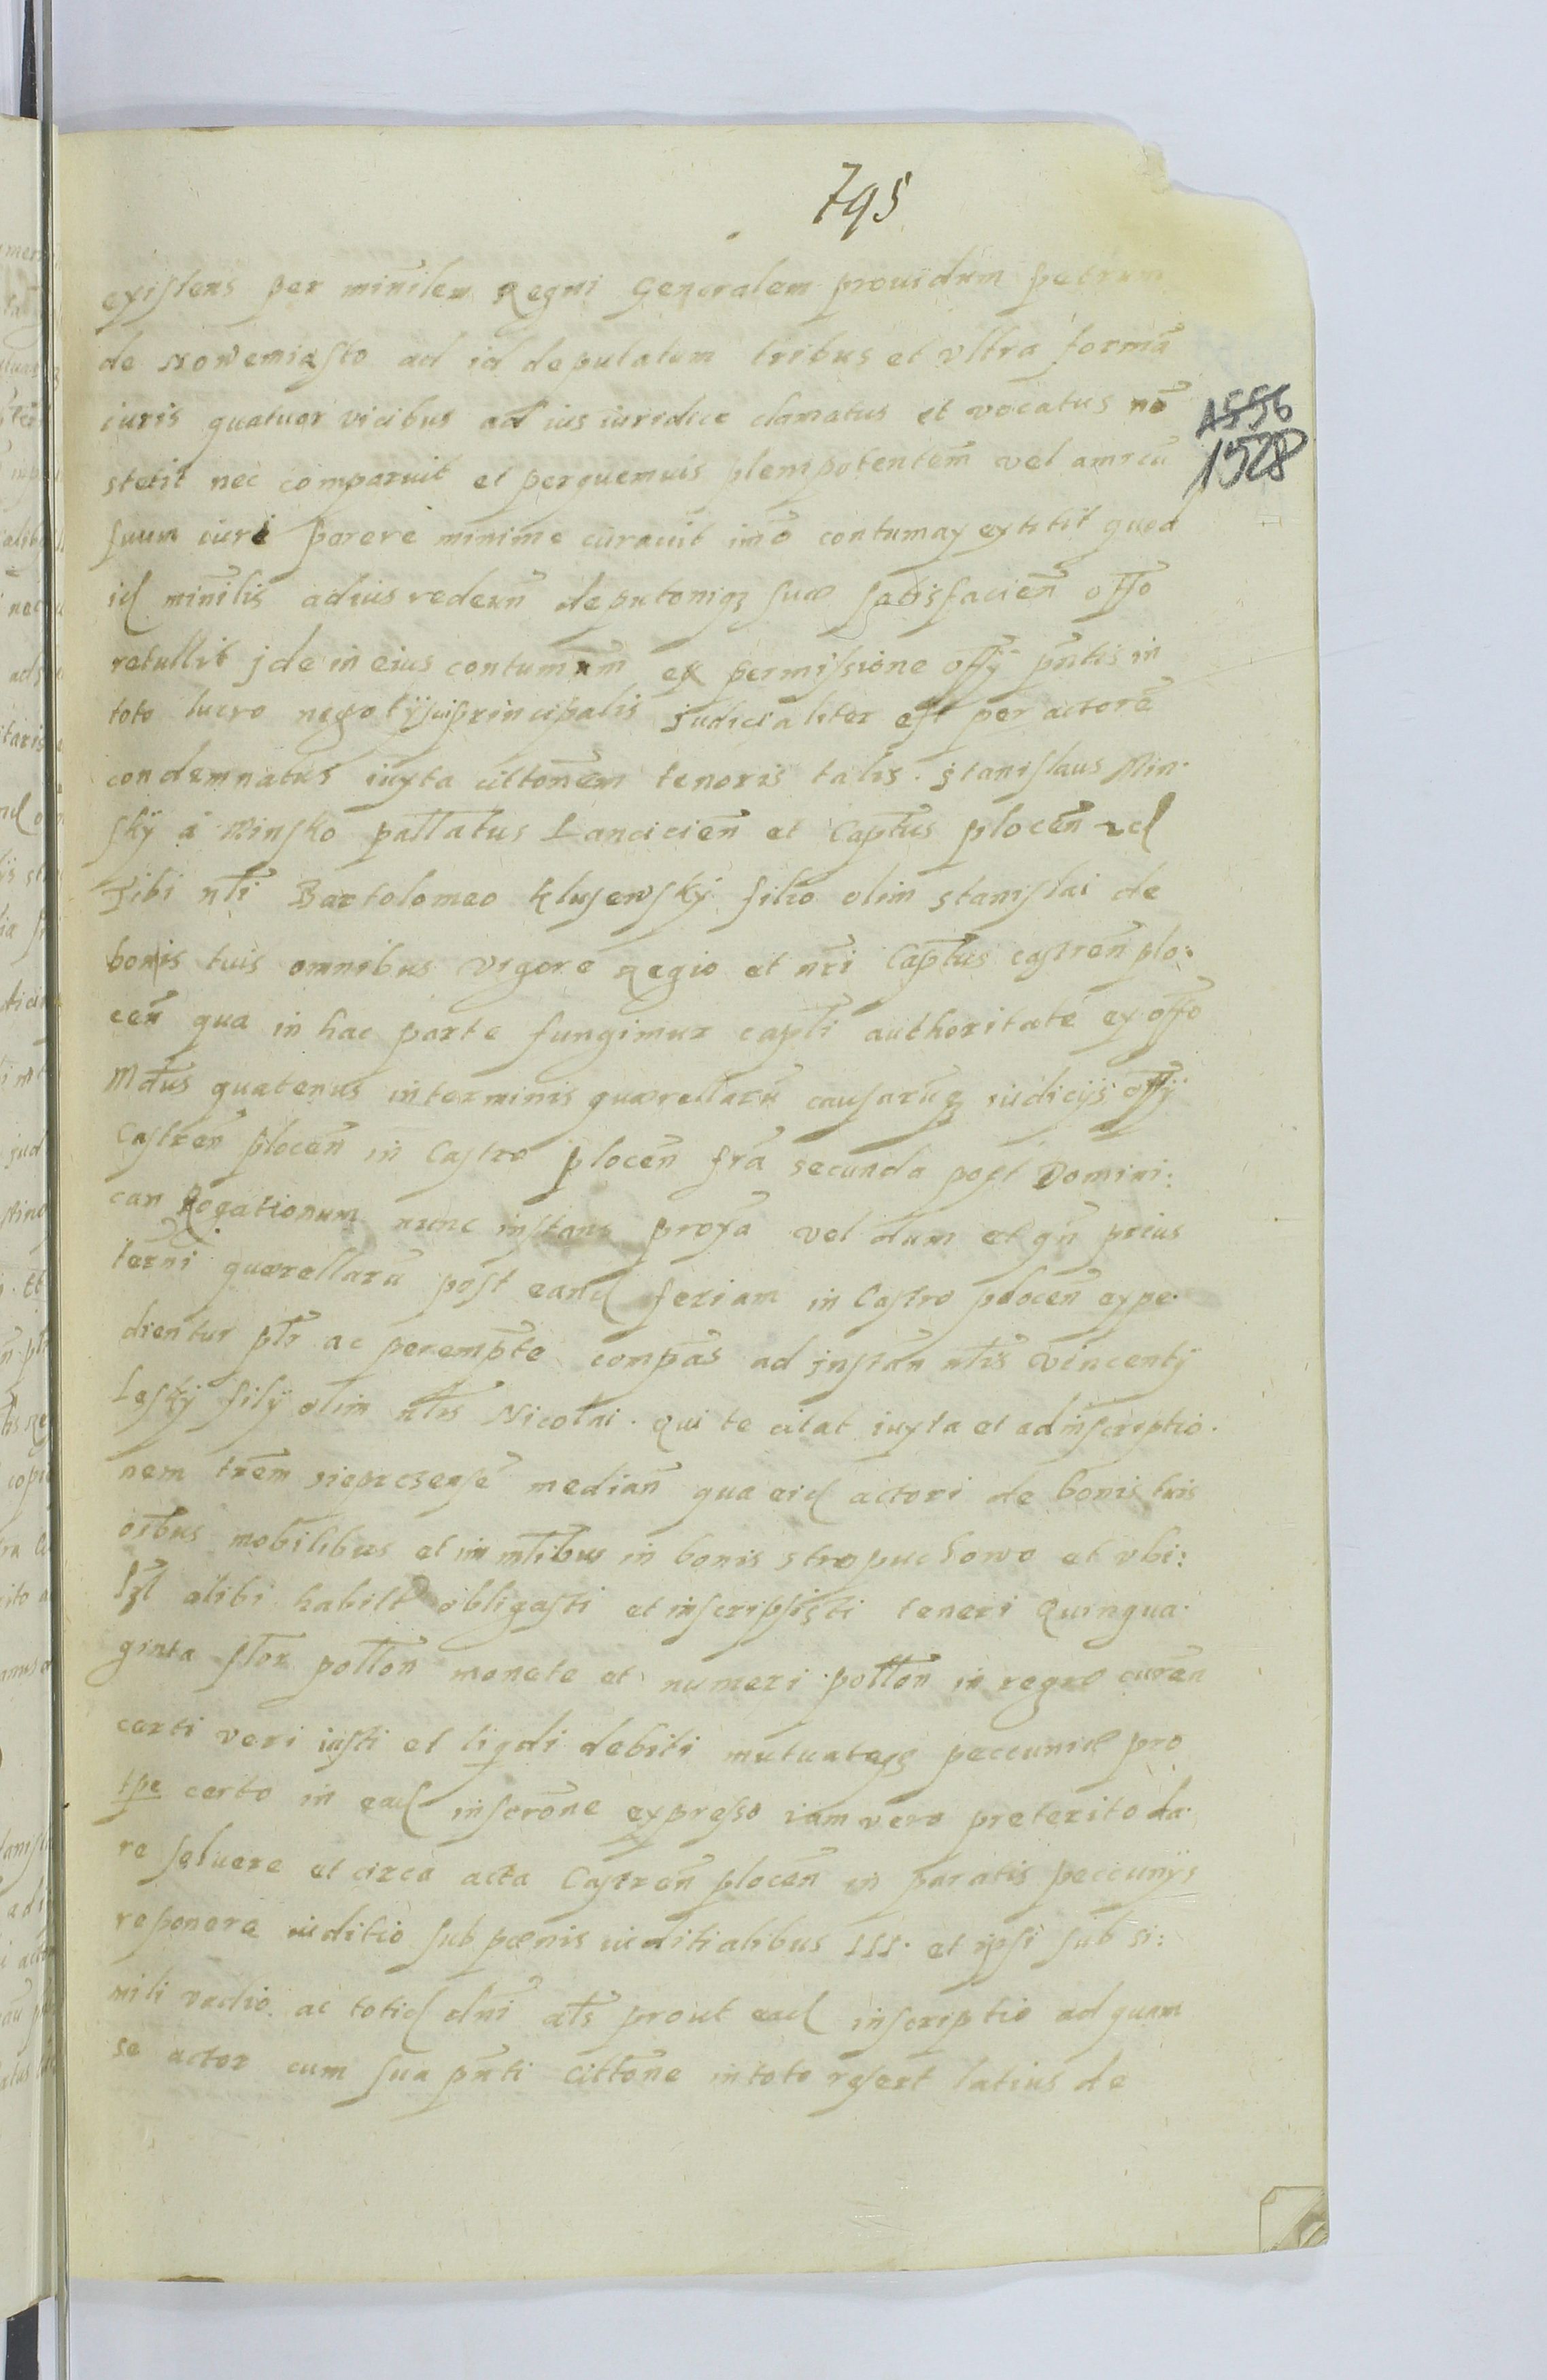 795
existens per minilem Regni Generalem prouidum petrum
de Nowemiasto ad id deputatum tribus et vltra formā
iuris quatuor vicibus ad ius iuridice clamatus et vocatus nō
1556
1528
stetit nec comparuit et perquemuis plenipotentem vel amicū
suum iuri parere minime curauit imō contumax extitit quod
id minilis adius redeun̄ deputoniqȝ suæ satisfacien̄ offo
retullit jde in eius contumam ex permissione offÿ pn̄tis in
toto lucro negotÿ sui principalis judicialiter est per actorē
condemnatus iuxta cittonem tenoris talis. Stanislaus Min.
skÿ à Minsko pallatus Lancicien̄ et Captus plocen̄
Tibi nli Bartolomeo Klusewskÿ filio olim Stanislai de
bonis tuis omnibus vigore Regio et nr̄i Captus castren̄ plo:
cen̄ qua in hac parte fungimur capli authoritate ex offo
Mdus quatenus in terminis quærellarū causarūqȝ iudicijs offÿ
Castren̄ plocen̄ in Castro plocen̄ fr̄a secunda post Domini:
cam Rogationum nunc instans proxa vel dum et qn̄ prius
termi quærellarū post eand feriam in Castro plocen̄ expe.
dientur plr ac perempte compas ad instan nlis Vincentÿ
Leskÿ filÿ olim nlis Nicolai. qui te citat iuxta et ad inscriptio.
nem trem median̄ qua eid actori de bonis tuis
oībus mobilibus et immlibus in bonis Stropuchowo et vbi:
lȝt alibi habilt obligasti et inscripsisti teneri Quinqua.
ginta flor pollon monete et numeri pollon in regno curen
certi veri iusti et liqdi debiti mutuateqȝ peccuniæ pro
tpe certo in ead inscrone expresso iam vero preterito da.
re soluere et circa acta Castren̄ plocen̄ in paratis peccunijs
reponere iuditio sub pœnis iuditialibus III. et ipsi sub si:
mili vadio ac totid dni als prout ead inscriptio ad quam
se actor cum sua pn̄ti cittone in toto refert latius de